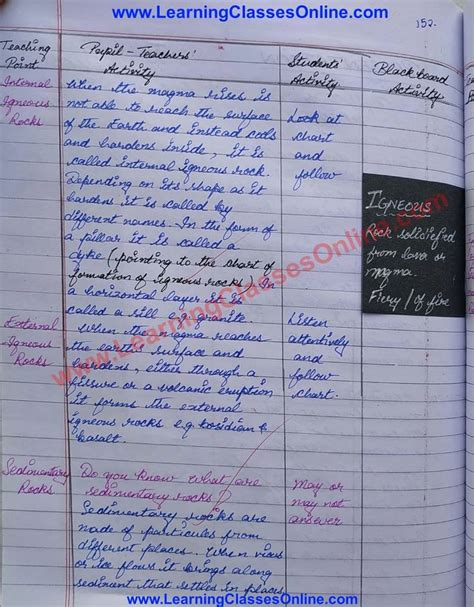 www.LearningClassesOnline.com
152.
Teaching Point
Pupil-Teachers' Activity
Students' Activity
Black board Activity
Internal
Igneous
Rocks
When the magma rises is
not able to reach the surface
of the Earth and instead cools
and hardens inside, it is
called internal igneous rock.
Depending on its shape as it
hardens it is called by
different names. In the form of
a pillar it is called a
dyke (pointing to the chart of
formation of igneous rocks). In
a horizontal layer it is
called a sill e.g. granite
Look at
chart
and
follow
IGNEOUS
Rock solidified
from lava or
magma.
Fiery / of fire
External
Igneous
Rocks
When the magma reaches
the earth's surface and
hardens, either through a
fissure or a volcanic eruption
it forms the external
igneous rocks e.g. obsidian &
basalt.
Listen
attentively
and
follow
chart.
Sedimentary
Rocks
Do you know what are
sedimentary rocks?
Sedimentary rocks are
made of particles from
different places. When
or ice flows it brings along
sediment that settles in places
May or
may not
answer
www.LearningClassesOnline.com
www.LearningClassesOnline.com